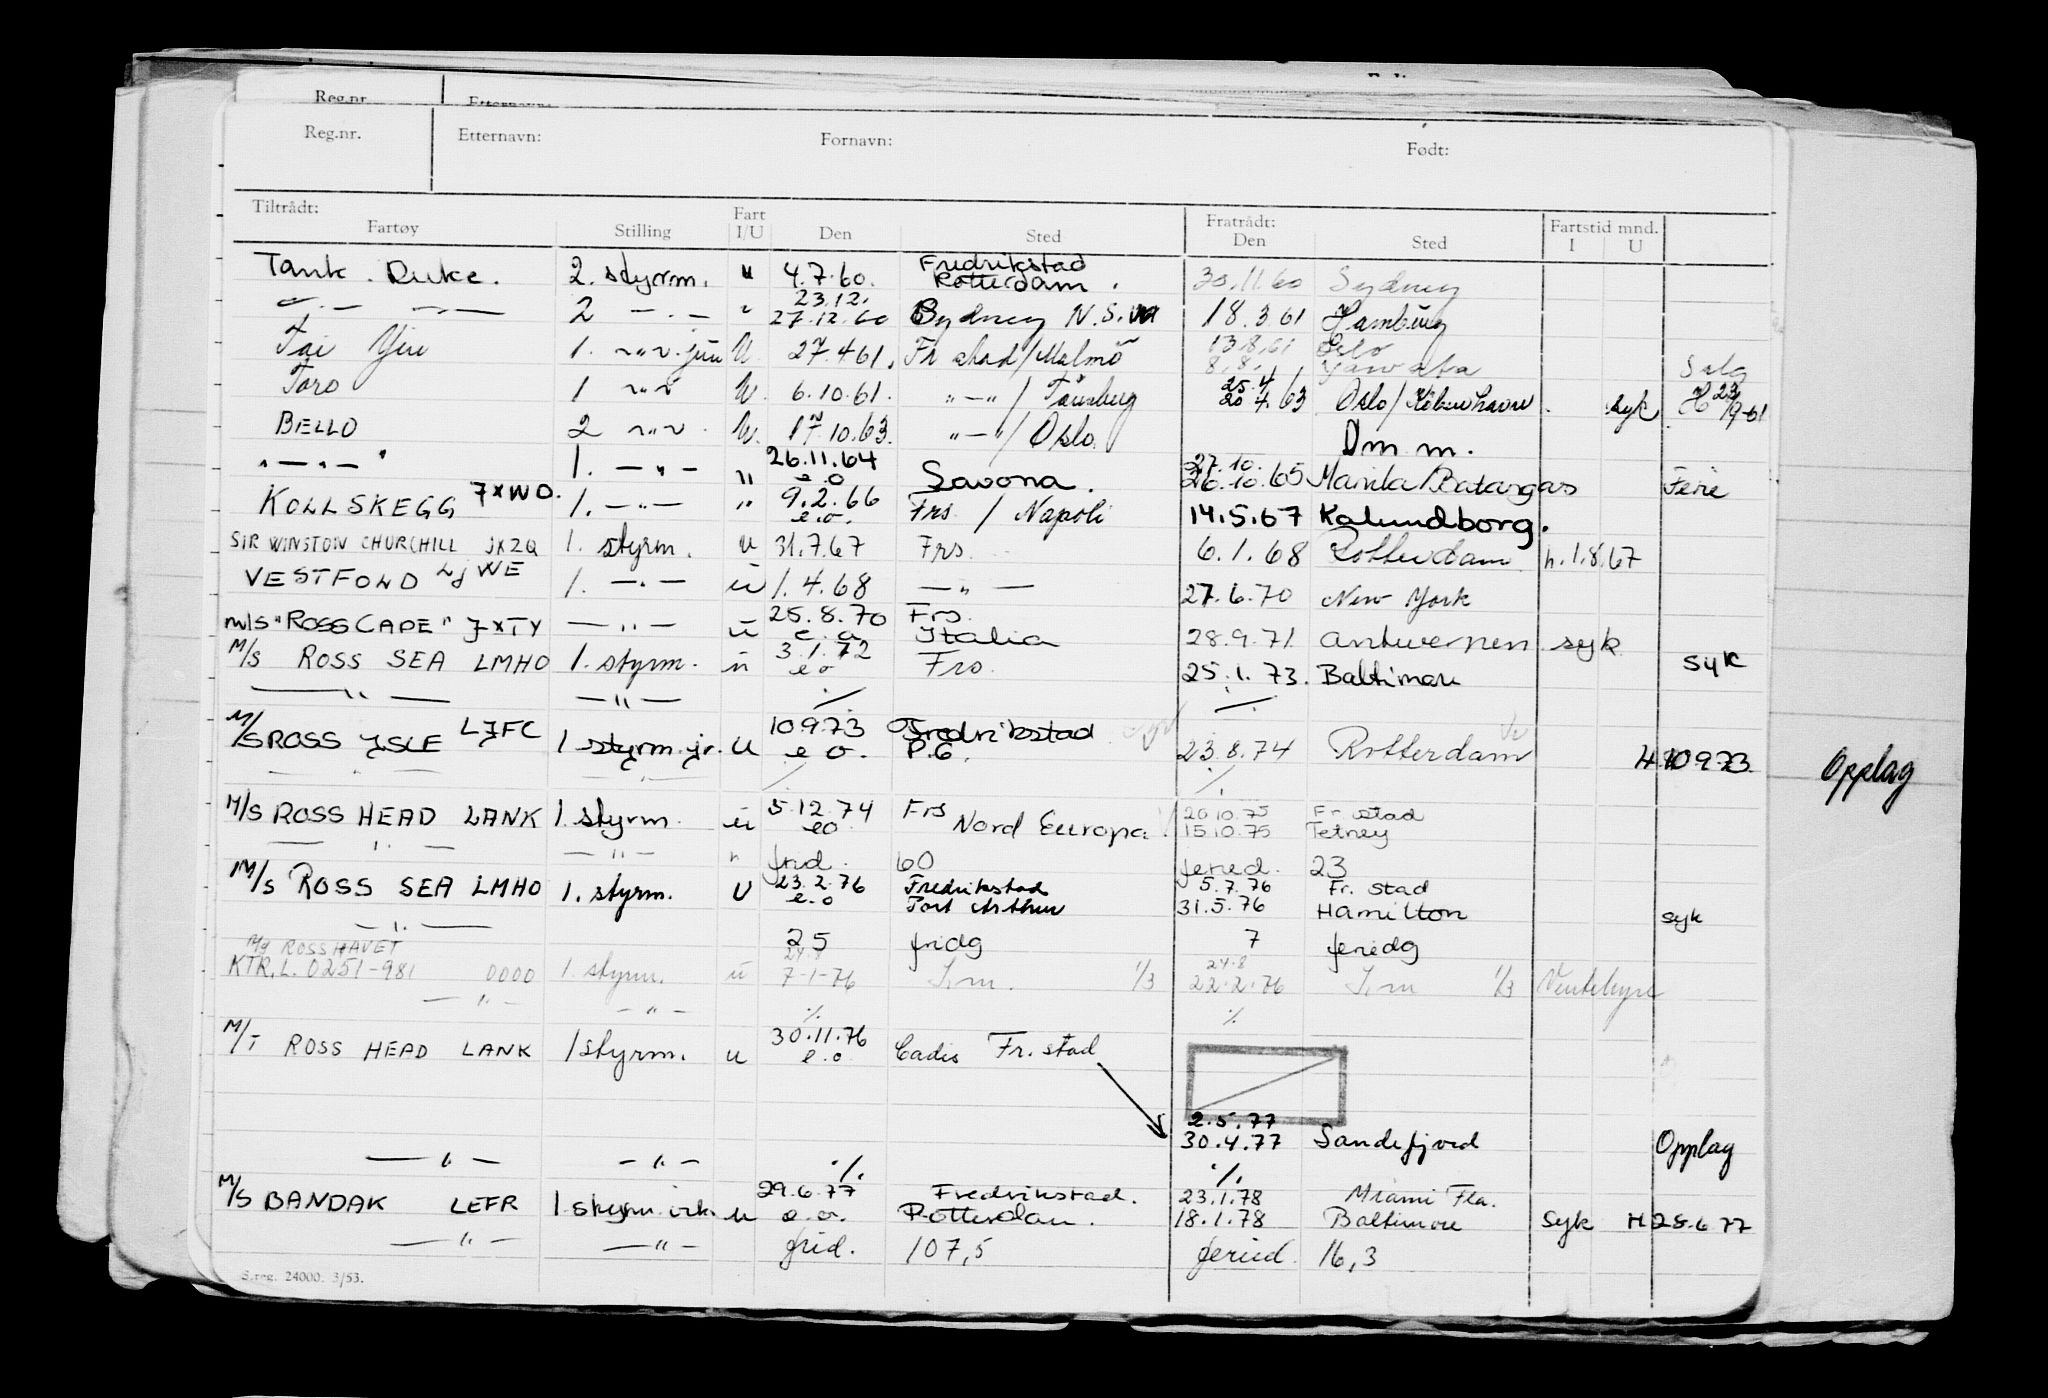 Reg.nr. Etternavn:
Reg.nr. Etternavn: Fornavn: Født:
Tiltrådt: Fart Fratrådt: Fartstid mnd.
Fartøy Stilling I/U Den Sted Den Sted I U
Fredrikstad
Tank Duke. 2. styrm. u 4.7.60. Rotterdam. 30.11.60 Sydney
23.12.
— " — 2 — " — " 27.12.60 Sydney N.S.W 18.3.61 Hamburg
13.8.61 Oslo
Tai Yin 1. — " — jun U. 27.4.61. Fr.stad/Malmö 8.8. Yawata Salg
25.4. H 23/9-61
Toro 1 — " — U. 6.10.61. " — " / Tönsberg 20.4.63 Oslo/København. syk
BELLO 2 — " — U. 17.10.63. " — " / Oslo. Dm. m.
26.11.64 27.10.
" — " — " 1. — " — " e.o Savona. 26.10.65 Manila/Batangas Ferie
9.2.66
KOLLSKEGG JXWO. 1. — " — " e.o. Frs. / Napoli 14.5.67 Kalundborg.
SIR WINSTON CHURCHILL JXZQ 1. styrm. u 31.7.67 Frs. 6.1.68 Rotterdam h. 1.8.67
VESTFOND LJWE 1. — " — u 1.4.68 — " — 27.6.70 New York
25.8.70 Frs.
m/s "ROSS CAPE" JXTY — " — u e.o Italia 28.9.71. Antwerpen syk
3.1.72
M/S ROSS SEA LMHO 1. styrm. u e o Frs. 25.1.73. Baltimore syk
— " — — " — ./. ./.
10.9.73 Fredrikstad
M/S ROSS ISLE LJFC 1 styrm. jr. U e o. P.G. 23.8.74 Rotterdam H. 10.9.73. Opplag
— " — — " — ./. ./.
5.12.74 Frs 20.10.75 Fr.stad
M/S ROSS HEAD LANK 1. styrm. u eo Nord Europa 15.10.75 Tetney
— " — — " — " frid. 60 feried. 23
23.2.76 Fredrikstad 5.7.76 Fr. stad
M/S ROSS SEA LMHO 1. styrm. U e.o Port Arthur 31.5.76 Hamilton syk
— " — 25 fridg 7 feriedg
M/S ROSSHAVET 24.8 24.8
KTR.L. 0251-981 0000 1. styrm. u 7-1-76 1/3 22.2.76 1/3 Ventehyre
— " — — " — ./. ./.
30.11.76
M/T ROSS HEAD LANK 1 styrm. u e.o. Cadis Fr.stad
2.5.77
30.4.77 Sandefjord Opplag
— " — — " — ./. ./.
29.6.77 Fredrikstad. 23.1.78 Miami Fla.
M/S BANDAK LEFR 1. styrm. vik. u e.o. Rotterdam. 18.1.78 Baltimore syk H 28.6.77
— " — — " — frid. 107,5 feried. 16,3
S.reg. 24000. 3/53.